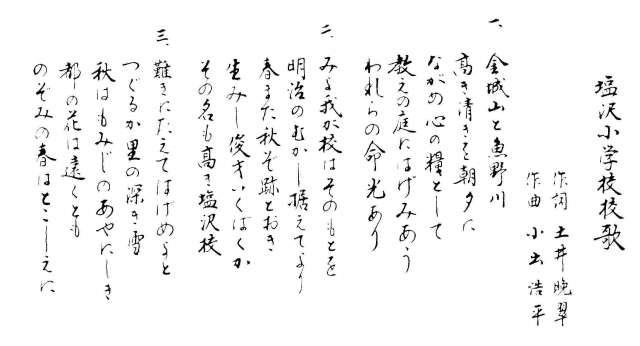 塩沢小学校校歌
作詞 土井晩翠
作曲 小出浩平
一、金城山と魚野川
高き清きを朝夕に
ながめ心の糧として
教えの庭にはげみあう
われらの命光あり
二、みよ我が校はそのもとを
明治のむかし据えてより
春また秋そ跡とおき
生みし俊才いくばくか
その名も高き塩沢校
三、難きにたえてはげめよと
つぐるか里の深き雪
秋はもみじのあやにしき
都の花は遠くとも
のぞみの春はとこしえに